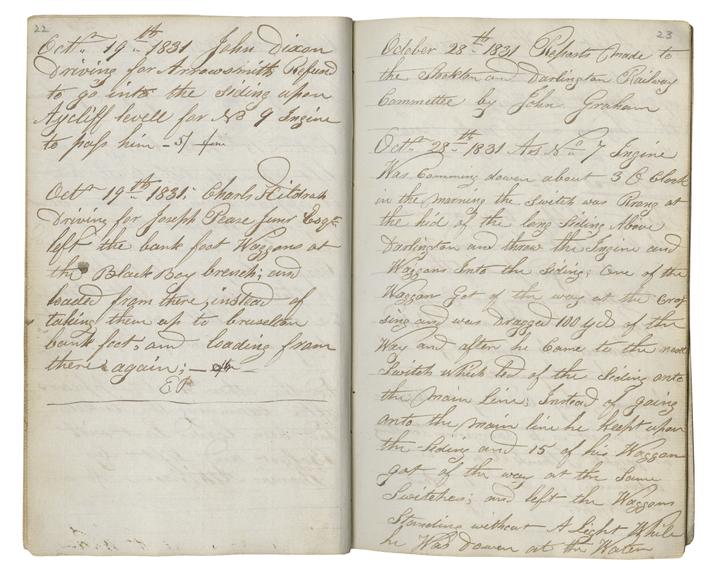 22
Octr 19th 1831 John Dixon
Driving for Arrowsmith Refused
to go into the Siding upon
Aycliff levell for No 9 Ingine
to pass him - 5/-
Oct 19th 1831; Charls Hildrah
Driving for Joseph Pease Junr Esqr
left the bank foot Waggons at
the Black Boy branch; and
loaded from there, instead of
taking them up to bruselton
bank foot, and loading from
there again; -
EP
23
October 28th 1831 Reports Made to
the Stockton and Darlington Railway
Committee by John Graham
Octr 28th 1831 As No 7 Ingine
Was Comming dowen about 3 O Clock
in the morning the Switch was Rrang at
the hid of the long Siding Above
Darlington and threw the Ingine and
Waggons Into the Siding; One of the
Waggon got of the way at the Cros
sing and was Dragged 100 yds of the
Way and after he Came to the next
Switch which led of the Siding onto
the Main Line; Instead of going
onto the main line he Keept upon
the Siding and 15 of his Waggon
got of the way at the Same
Switches; and left the Waggons
Standing without A Light While
he Was Dowen at the Water